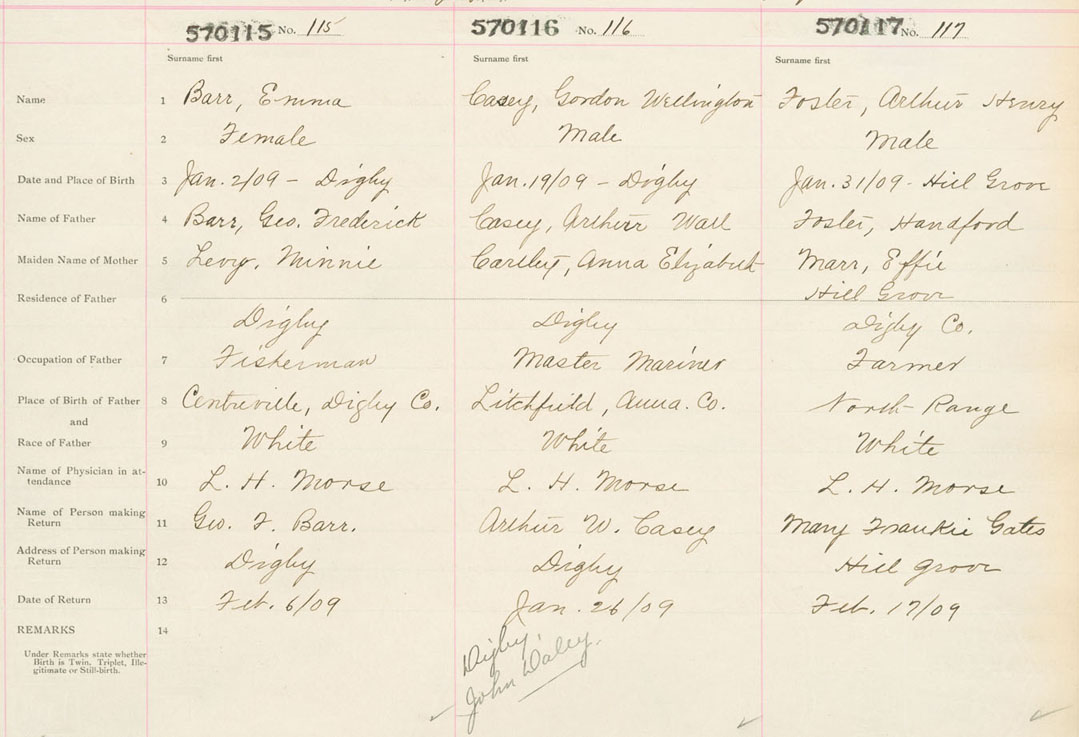 570115 No. 115 570116 No. 116 570117 No. 117
Surname first Surname first Surname first
Name 1 Barr, Emma Casey, Gordon Wellington Foster, Arthur Henry
Sex 2 Female Male Male
Date and Place of Birth 3 Jan. 2/09 - Digby Jan. 19/09 - Digby Jan. 31/09 - Hill Grove
Name of Father 4 Barr, Geo. Frederick Casey, Arthur Foster, Handford
Maiden Name of Mother 5 Levy, Minnie Anna Elizabeth Marr, Effie
Residence of Father 6 Hill Grove
Digby Digby Digby Co.
Occupation of Father 7 Fisherman Master Mariner Farmer
Place of Birth of Father 8 Centreville, Digby Co. Litchfield, Anna. Co. North Range
and
Race of Father 9 White White White
Name of Physician in at-
tendance 10 L. H. Morse L. H. Morse L. H. Morse
Name of Person making
Return 11 Geo. F. Barr. Arthur W. Casey Mary Frankie Gates
Address of Person making
Return 12 Digby Digby Hill Grove
Date of Return 13 Feb. 6/09 Jan. 26/09 Feb. 17/09
REMARKS 14
Under Remarks state whether
Birth is Twin. Triplet, Ille-
gitimate or Still-birth.
Digby
John Daley.